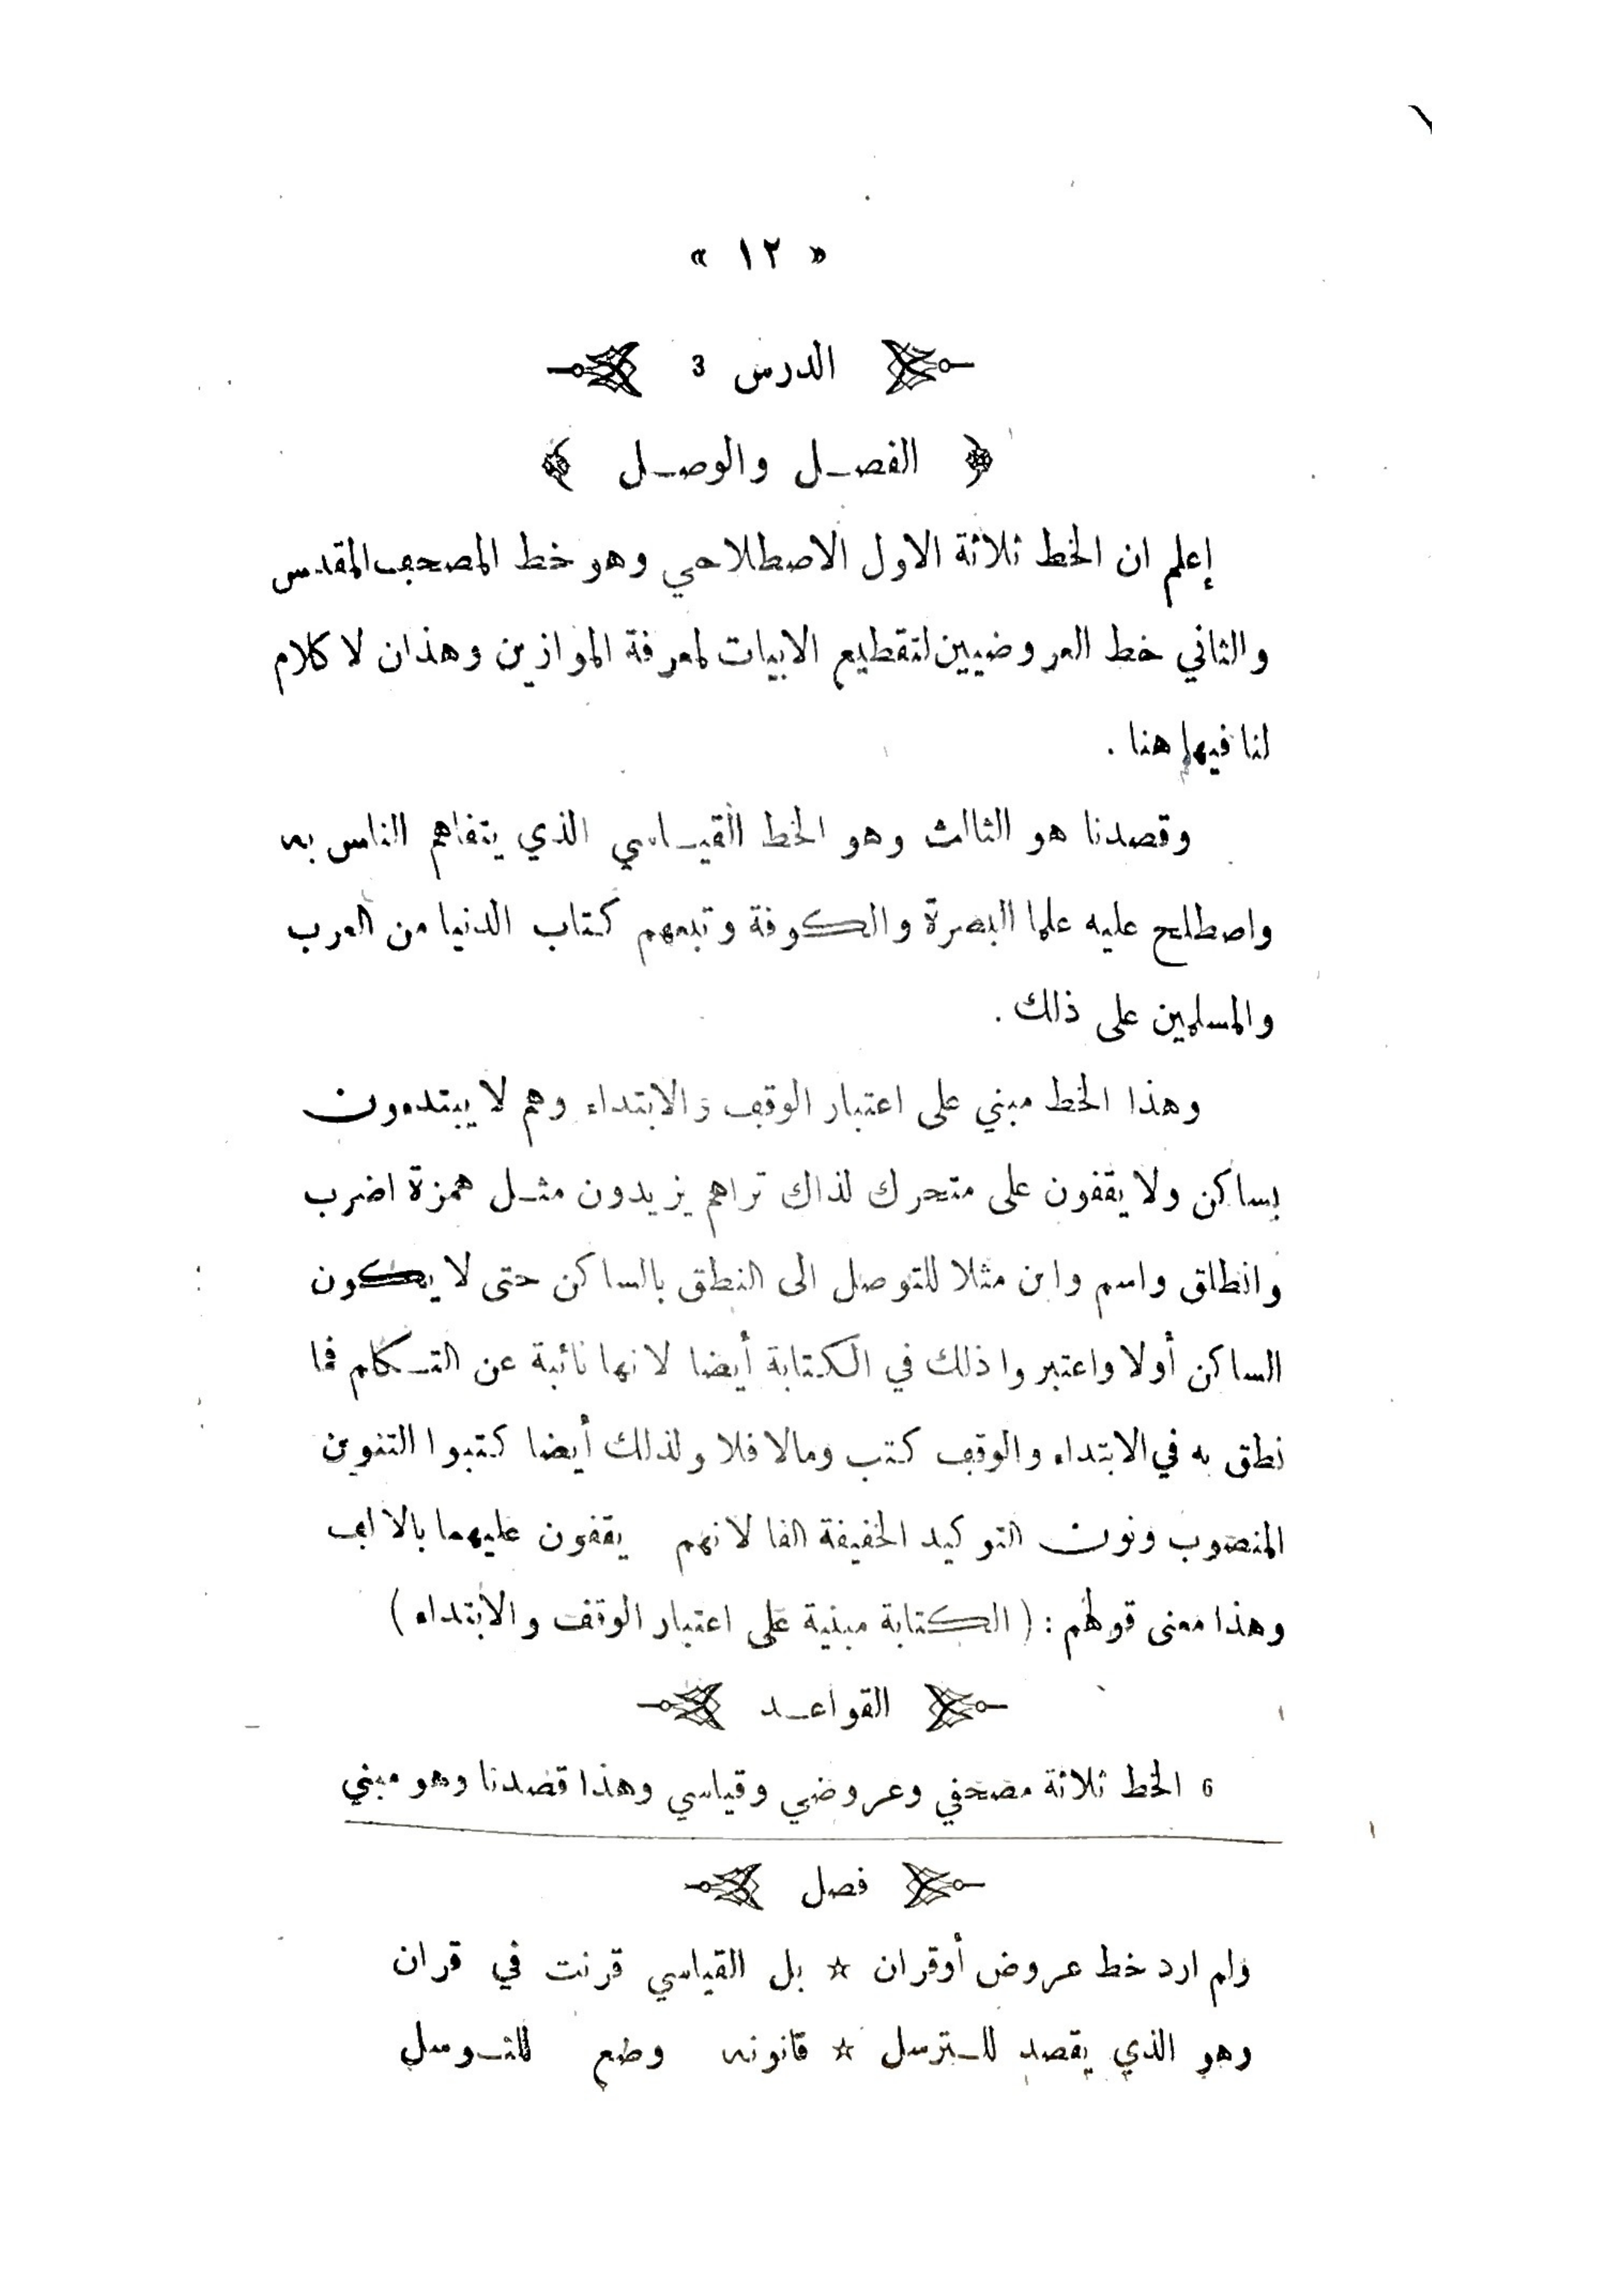 « ١٢ »
الدرس 3
﴿ الفصـل والوصـل ﴾
إعلم ان الخط ثلاثة الاول الاصطلاحي وهو خط المصحف المقدس
والثاني خط العروضيين لتقطيع الابيات لمعرفة الموازين وهذان لا كلام
لنا فيهما هنا .
وقصدنا هو الثالث وهو الخط القيـاسي الذي يتفاهم الناس به
واصطلح عليه علما البصرة والكوفة وتبعهم كتاب الدنيا من العرب
والمسلمين على ذلك .
وهذا الخط مبني على اعتبار الوقف والابتداء وهم لا يبتدءون
بساكن ولا يقفون على متحرك لذاك تراهم يزيدون مثـل همزة اضرب
وانطلق واسم وابن مثلا للتوصل الى النطق بالساكن حتى لا يكون
الساكن أولا واعتبروا ذلك في الكتابة أيضا لانها نائبة عن التـكلم فما
نطق به في الابتداء والوقف كتب ومالا فلا ولذلك أيضا كتبوا التنوين
المنصوب ونون التوكيد الخفيفة الفا لانهم يقفون عليهما بالالف
وهذا معنى قولهم : ( الكتابة مبنية على اعتبار الوقف والابتداء )
القواعـد
6 الخط ثلاثة مصحفي وعروضي وقياسي وهذا قصدنا وهو مبني
فصل
ولم ارد خط عروض أوقران ☆ بل القياسي قرنت في قران
وهو الذي يقصد للـترسل ☆ قانونه وضع للتـوسل